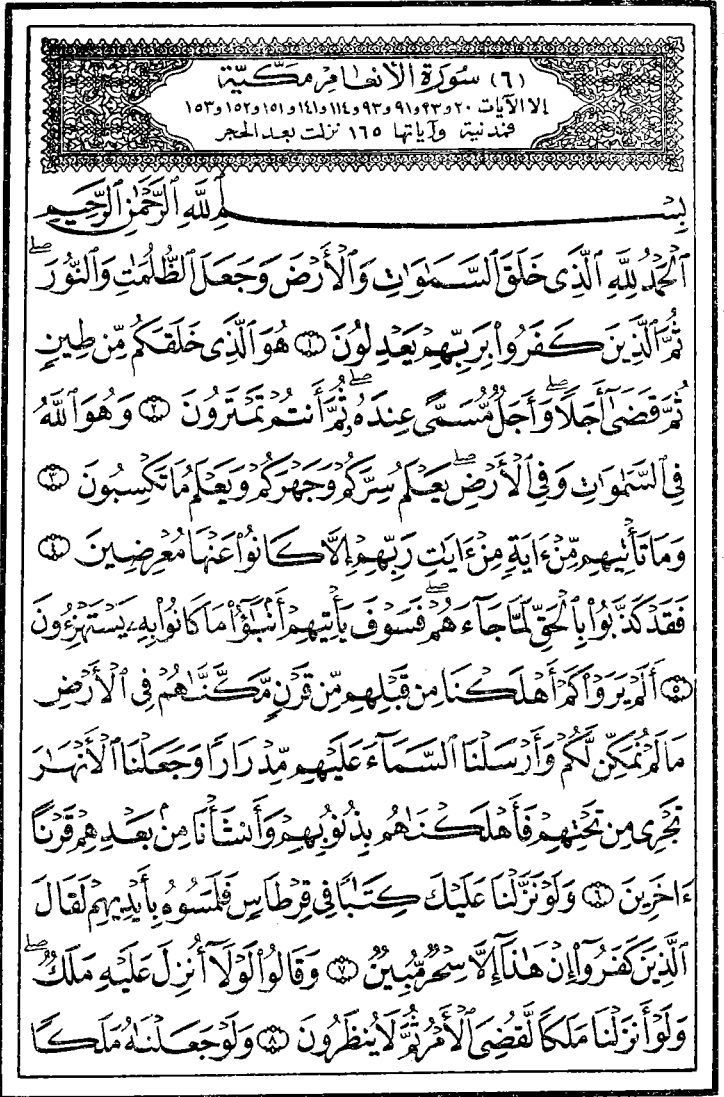 (٦) سُورَة الأنعَام مكيّة
إلا الآيات ٢٠ و٢٣ و٩١ و٩٣ و١١٤ و١٤١ و١٥١ و١٥٢ و١٥٣
فمدنية وآياتها ١٦٥ نزلت بعد الحجر
بِسْمِ ٱللَّهِ ٱلرَّحْمَٰنِ ٱلرَّحِيمِ
ٱلْحَمْدُ لِلَّهِ ٱلَّذِى خَلَقَ ٱلسَّمَٰوَٰتِ وَٱلْأَرْضَ وَجَعَلَ ٱلظُّلُمَٰتِ وَٱلنُّورَ ۖ
ثُمَّ ٱلَّذِينَ كَفَرُوا۟ بِرَبِّهِمْ يَعْدِلُونَ ١ هُوَ ٱلَّذِى خَلَقَكُم مِّن طِينٍ
ثُمَّ قَضَىٰٓ أَجَلًا ۖ وَأَجَلٌ مُّسَمًّى عِندَهُۥ ۖ ثُمَّ أَنتُمْ تَمْتَرُونَ ٢ وَهُوَ ٱللَّهُ
فِى ٱلسَّمَٰوَٰتِ وَفِى ٱلْأَرْضِ ۖ يَعْلَمُ سِرَّكُمْ وَجَهْرَكُمْ وَيَعْلَمُ مَا تَكْسِبُونَ ٣
وَمَا تَأْتِيهِم مِّنْ ءَايَةٍ مِّنْ ءَايَٰتِ رَبِّهِمْ إِلَّا كَانُوا۟ عَنْهَا مُعْرِضِينَ ٤
فَقَدْ كَذَّبُوا۟ بِٱلْحَقِّ لَمَّا جَآءَهُمْ ۖ فَسَوْفَ يَأْتِيهِمْ أَنۢبَٰٓؤُا۟ مَا كَانُوا۟ بِهِۦ يَسْتَهْزِءُونَ
٥ أَلَمْ يَرَوْا۟ كَمْ أَهْلَكْنَا مِن قَبْلِهِم مِّن قَرْنٍ مَّكَّنَّٰهُمْ فِى ٱلْأَرْضِ
مَا لَمْ نُمَكِّن لَّكُمْ وَأَرْسَلْنَا ٱلسَّمَآءَ عَلَيْهِم مِّدْرَارًا وَجَعَلْنَا ٱلْأَنْهَٰرَ
تَجْرِى مِن تَحْتِهِمْ فَأَهْلَكْنَٰهُم بِذُنُوبِهِمْ وَأَنشَأْنَا مِنۢ بَعْدِهِمْ قَرْنًا
ءَاخَرِينَ ٦ وَلَوْ نَزَّلْنَا عَلَيْكَ كِتَٰبًا فِى قِرْطَاسٍ فَلَمَسُوهُ بِأَيْدِيهِمْ لَقَالَ
ٱلَّذِينَ كَفَرُوٓا۟ إِنْ هَٰذَآ إِلَّا سِحْرٌ مُّبِينٌ ٧ وَقَالُوا۟ لَوْلَآ أُنزِلَ عَلَيْهِ مَلَكٌ ۖ
وَلَوْ أَنزَلْنَا مَلَكًا لَّقُضِىَ ٱلْأَمْرُ ثُمَّ لَا يُنظَرُونَ ٨ وَلَوْ جَعَلْنَٰهُ مَلَكًا